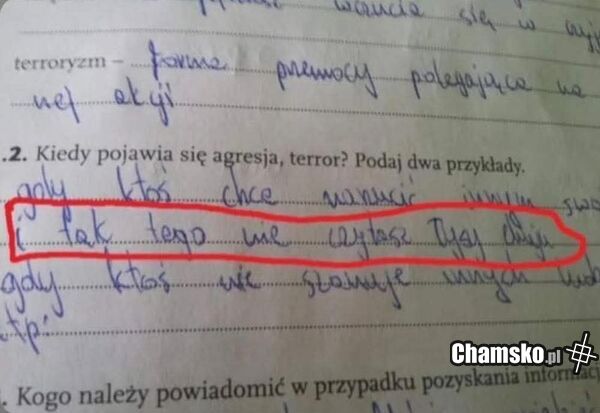 waucia się w
terroryzm – forma przemocy polegająca na
nej akcji
.2. Kiedy pojawia się agresja, terror? Podaj dwa przykłady.
gdy ktoś chce narzucić innym swo
i tak tego nie czytasz Łysy
gdy ktoś nie szanuje innych
.tp.
. Kogo należy powiadomić w przypadku pozyskania informacj
Chamsko.pl